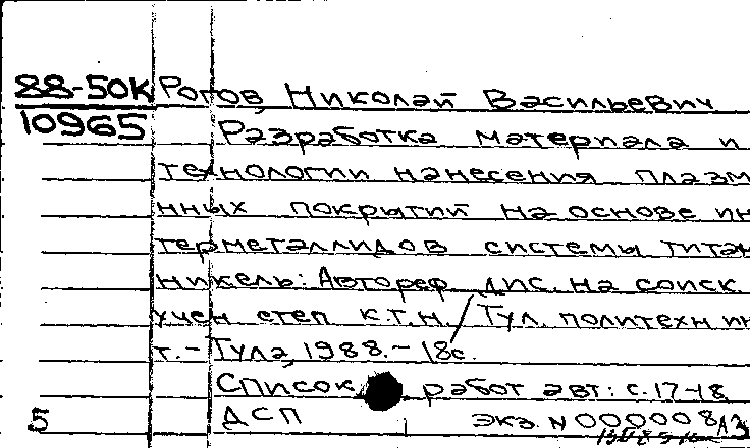 88-50К Рогов, Николай Васильевич
10965 Разработка материала и
технологии нанесения плазм
нных покрытий на основе ин
терметаллидов системы титан
никель: Автореф. дис. на соиск.
учен степ к.т.н. / Тул. политехн ин
т. – Тула, 1988. – 18с.
Список работ авт: с. 17-18
ДСП экз. N 000008
5